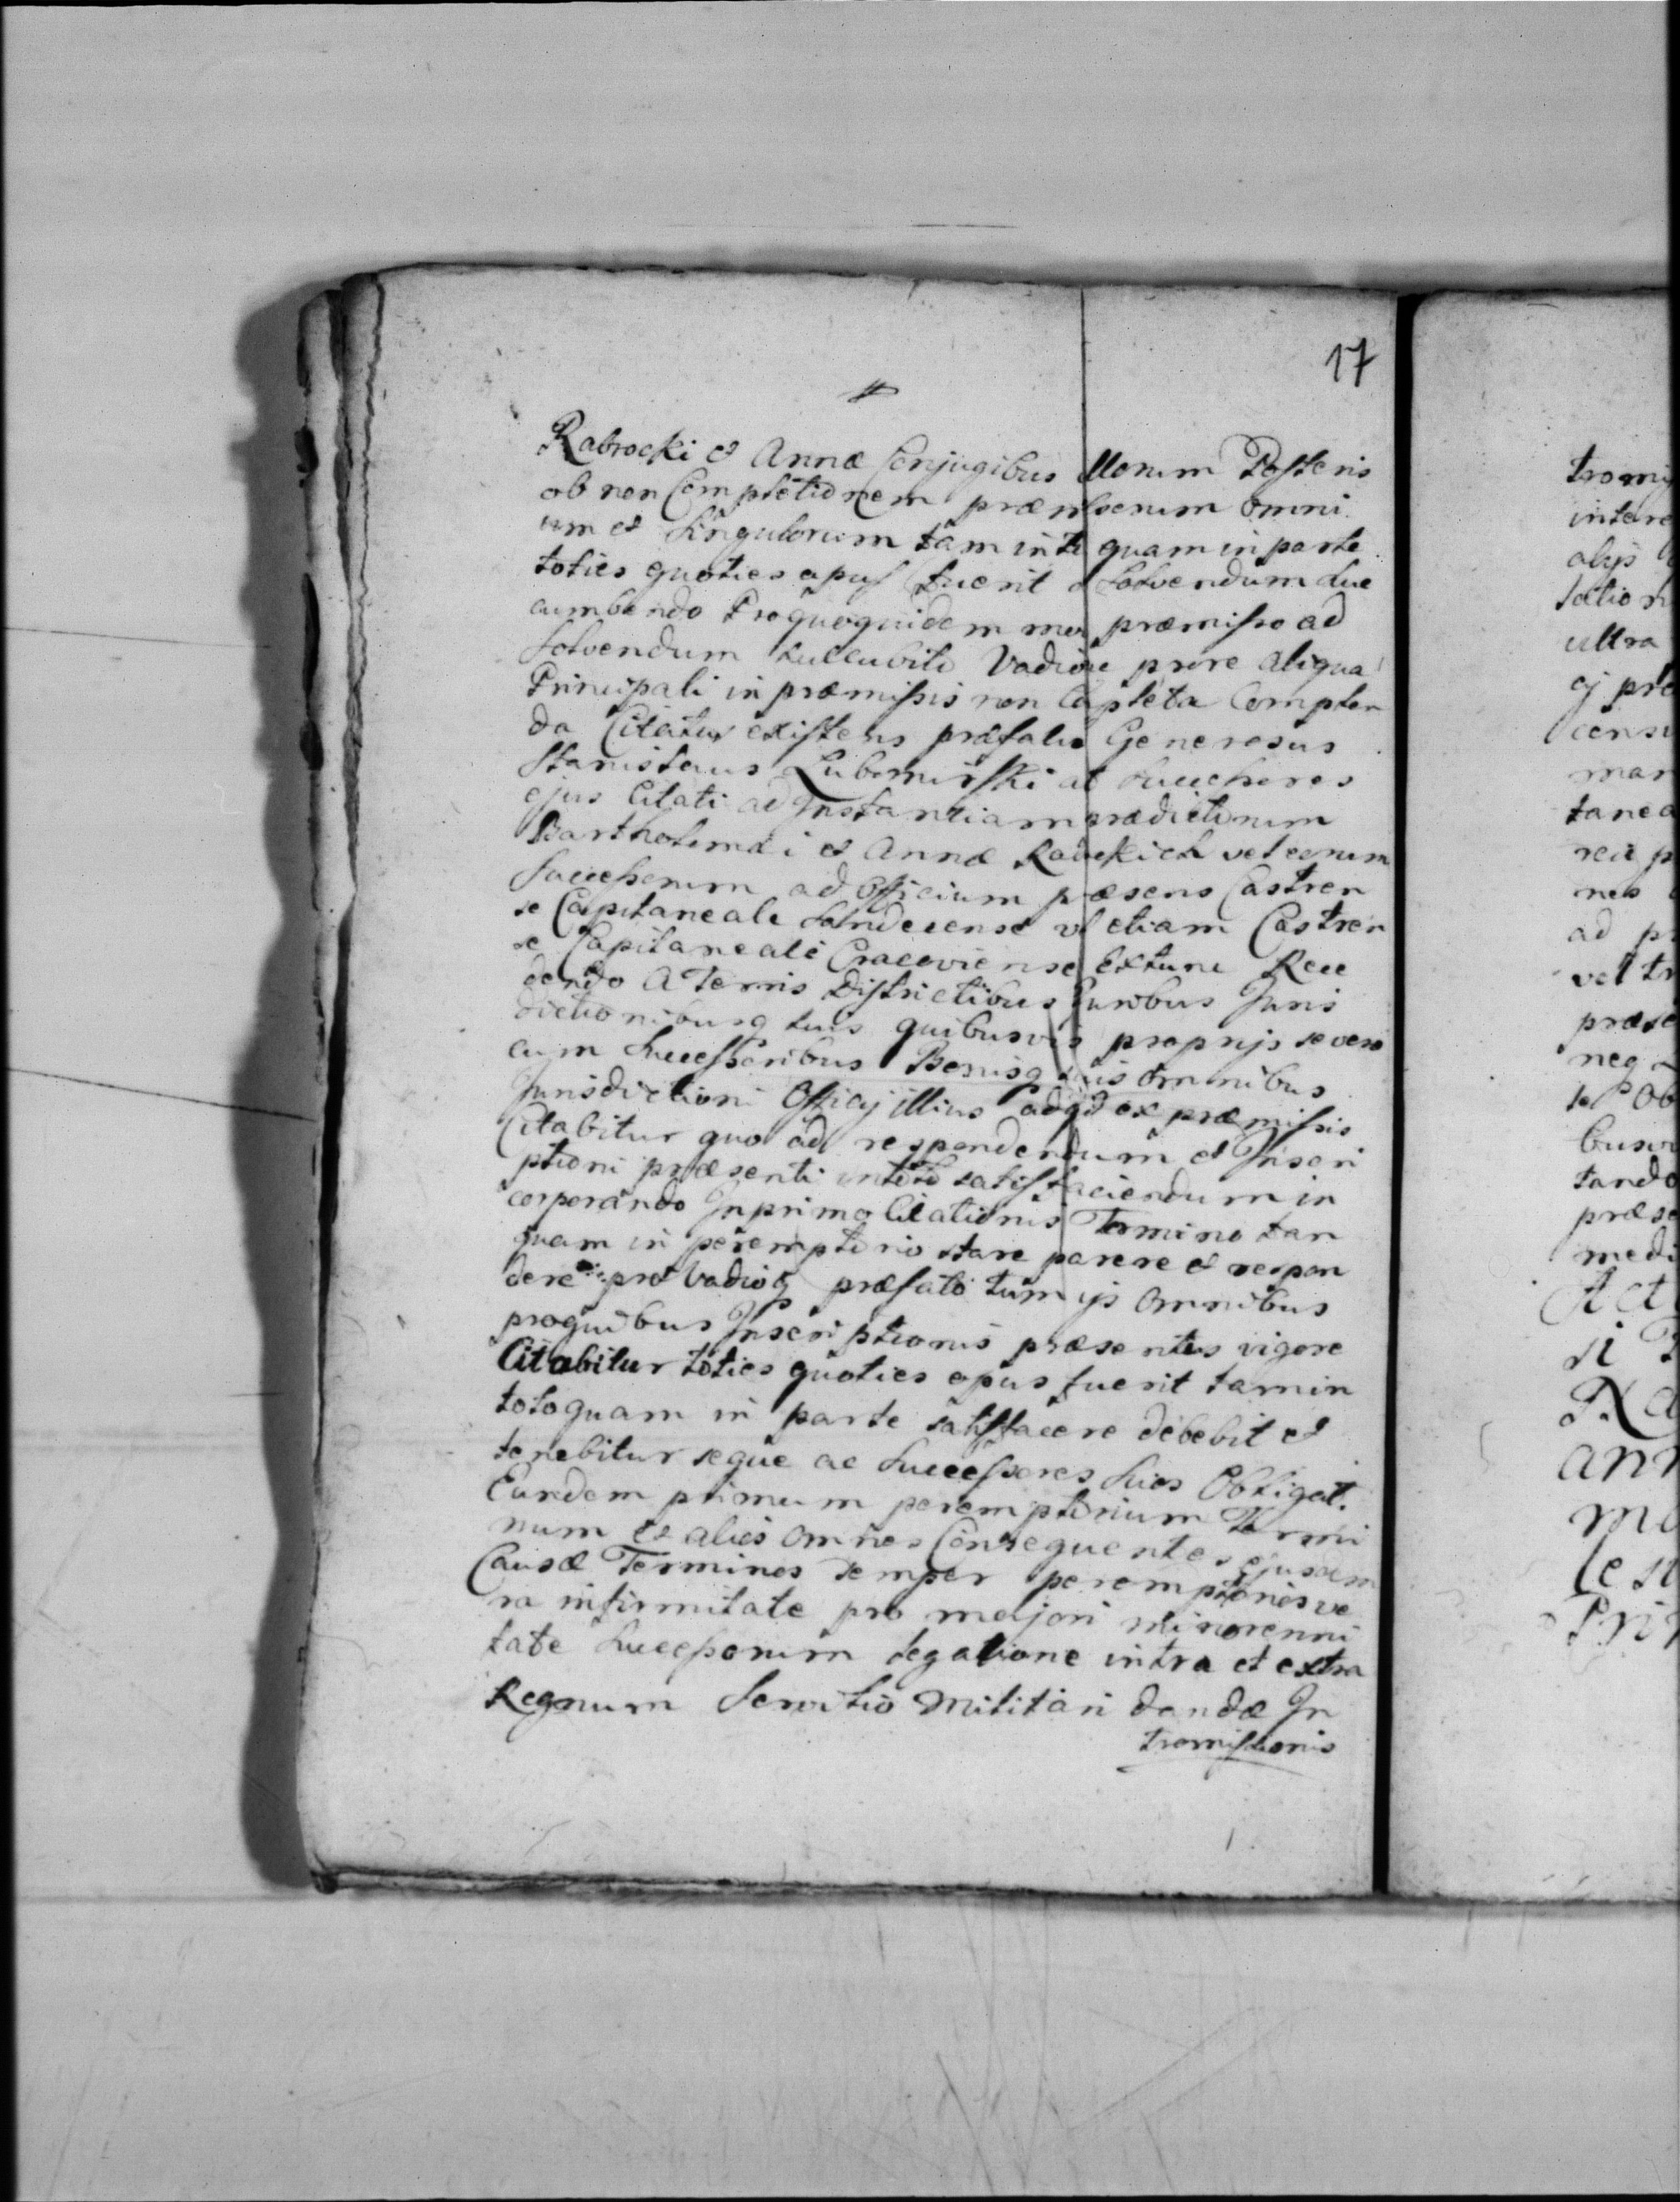 17
Rabrocki et Annæ Conjugibus illorum Posteris
ob non Completionem præmissorum omni
um et singulorum tam in to quam in parte
toties quoties opus fuerit solvendum suc
cumbendo Proquoquidem mox præmisso ad
solvendum succubito Vadio pro re aliqua
Principali in præmissis non Copleta Complen
da Citatus existens præfatus Generosus
Stanislaus Lubomirski at succhores
ejus Citati ad Instantiam prædictorum
Bartholomæi et Annæ Rabckich vel eorum
Successorum ad Officium præsens Castren
se Capitaneale Sandecense vl etiam Castren
se Capitaneale Cracoviense Extunc Rece
dendo A Terris Districtibus Juribus Juris
dictionibusq suis quibusvis proprijs se vero
cum Successoribus Bonisq suis omnibus
Jurisdictioni Officij illius adqd ex præmissis
Citabitur quo ad respondendum et Inscri
ptioni præsenti in toto satisfaciendum in
corporando In primo Citationis Termino tan
quam in peremptorio stare parere et respon
dere pro Vadioq præfato tum ijs omnibus
proquibus Inscriptionis præsentis vigore
Citabitur toties quoties opus fuerit tam in
toto quam in parte satisfacere debebit et
tenebitur seque ac Successores suos Obligat.
Eundem primum peremptorium Termi
num et alios omnes Consequentes ejusdem
Causæ Terminos semper peremptorios ve
ra infirmitate pro majori minorenni
tate Successorum legatione intra et extra
Regnum Servitio Militari dandæ In
tromissionis
tromi
intere
alijs
satio
ultra
ej præ
cens
man
tanea
rea p
nes
ad pr
vel tr
præse
neq
se Ob
busv
tando
præse
medi
Act
si
Ra
ann
mo
Pri